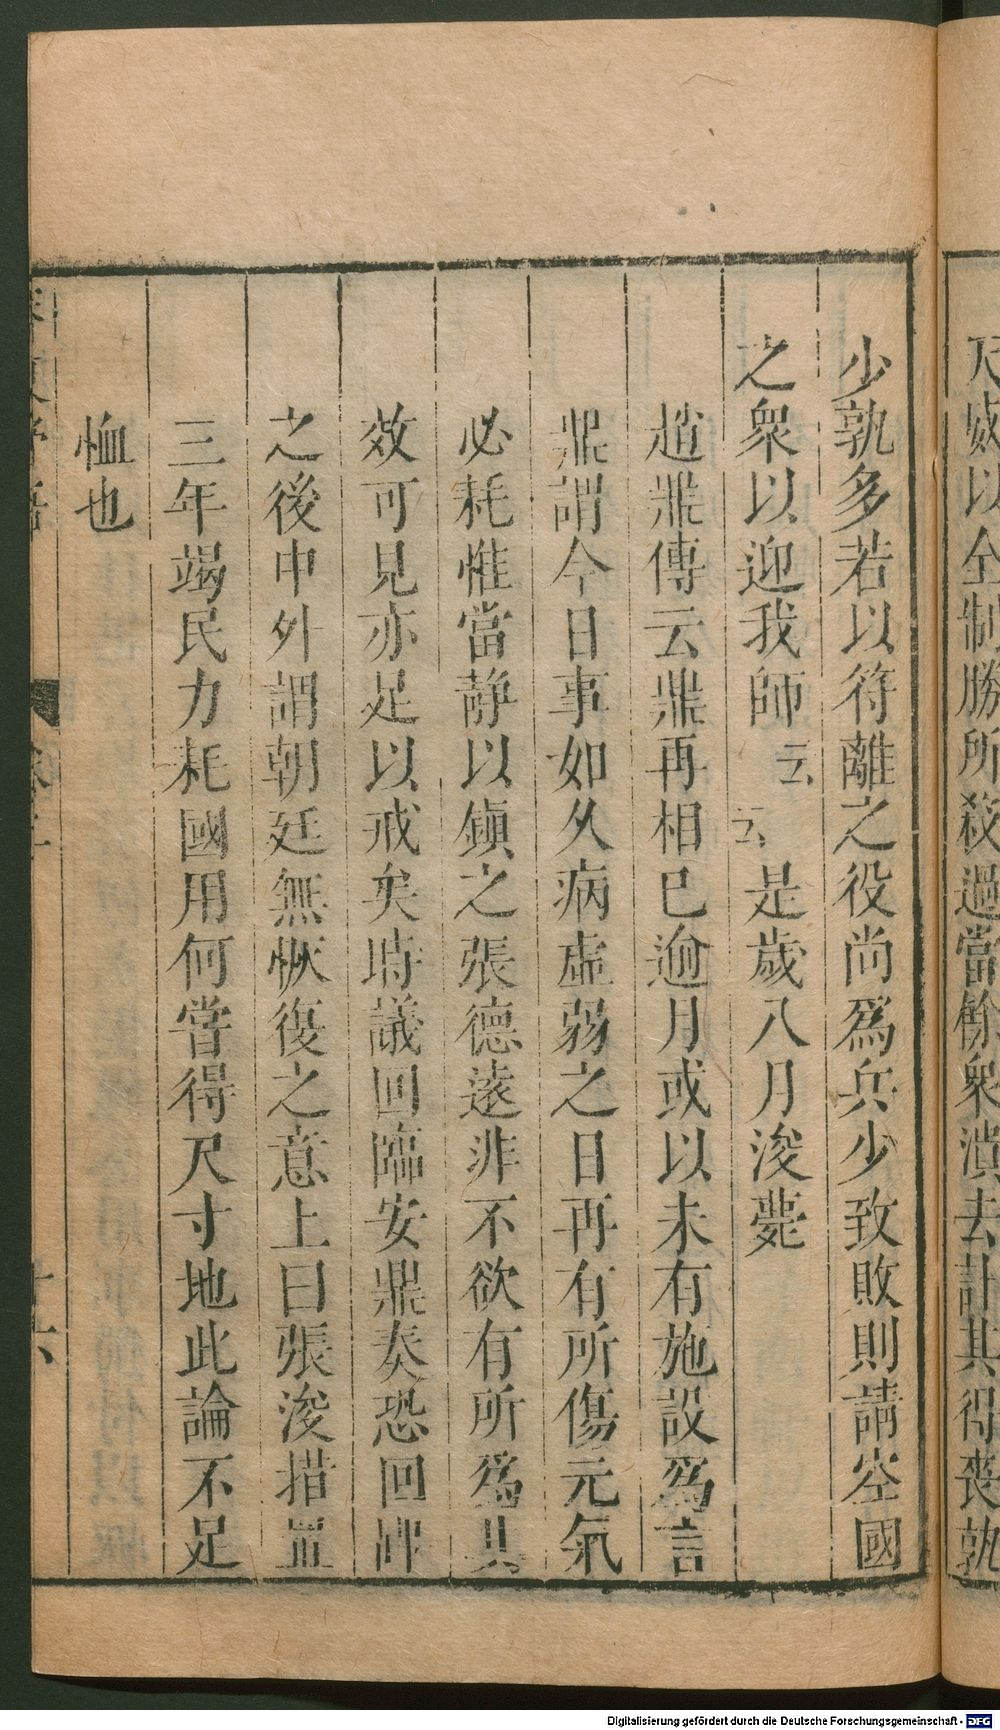 天威以全制勝所殺過當餘衆潰去計其得喪孰
少孰多若以符離之役尚爲兵少致敗則請空國
之衆以迎我師云云是歲八月浚薨
趙鼎傳云鼎再相已逾月或以未有施設爲言
鼎謂今日事如久病虛弱之日再有所傷元氣
必耗惟當静以鎭之張德遠非不欲有所爲其
效可見亦足以戒矣時議回臨安鼎奏恐回蹕
之後中外謂朝廷無恢復之意上曰張浚措置
三年竭民力耗國用何嘗得尺寸地此論不足
恤也
十六
Digitalisierung gefördert durch die Deutsche Forschungsgemeinschaft - DFG